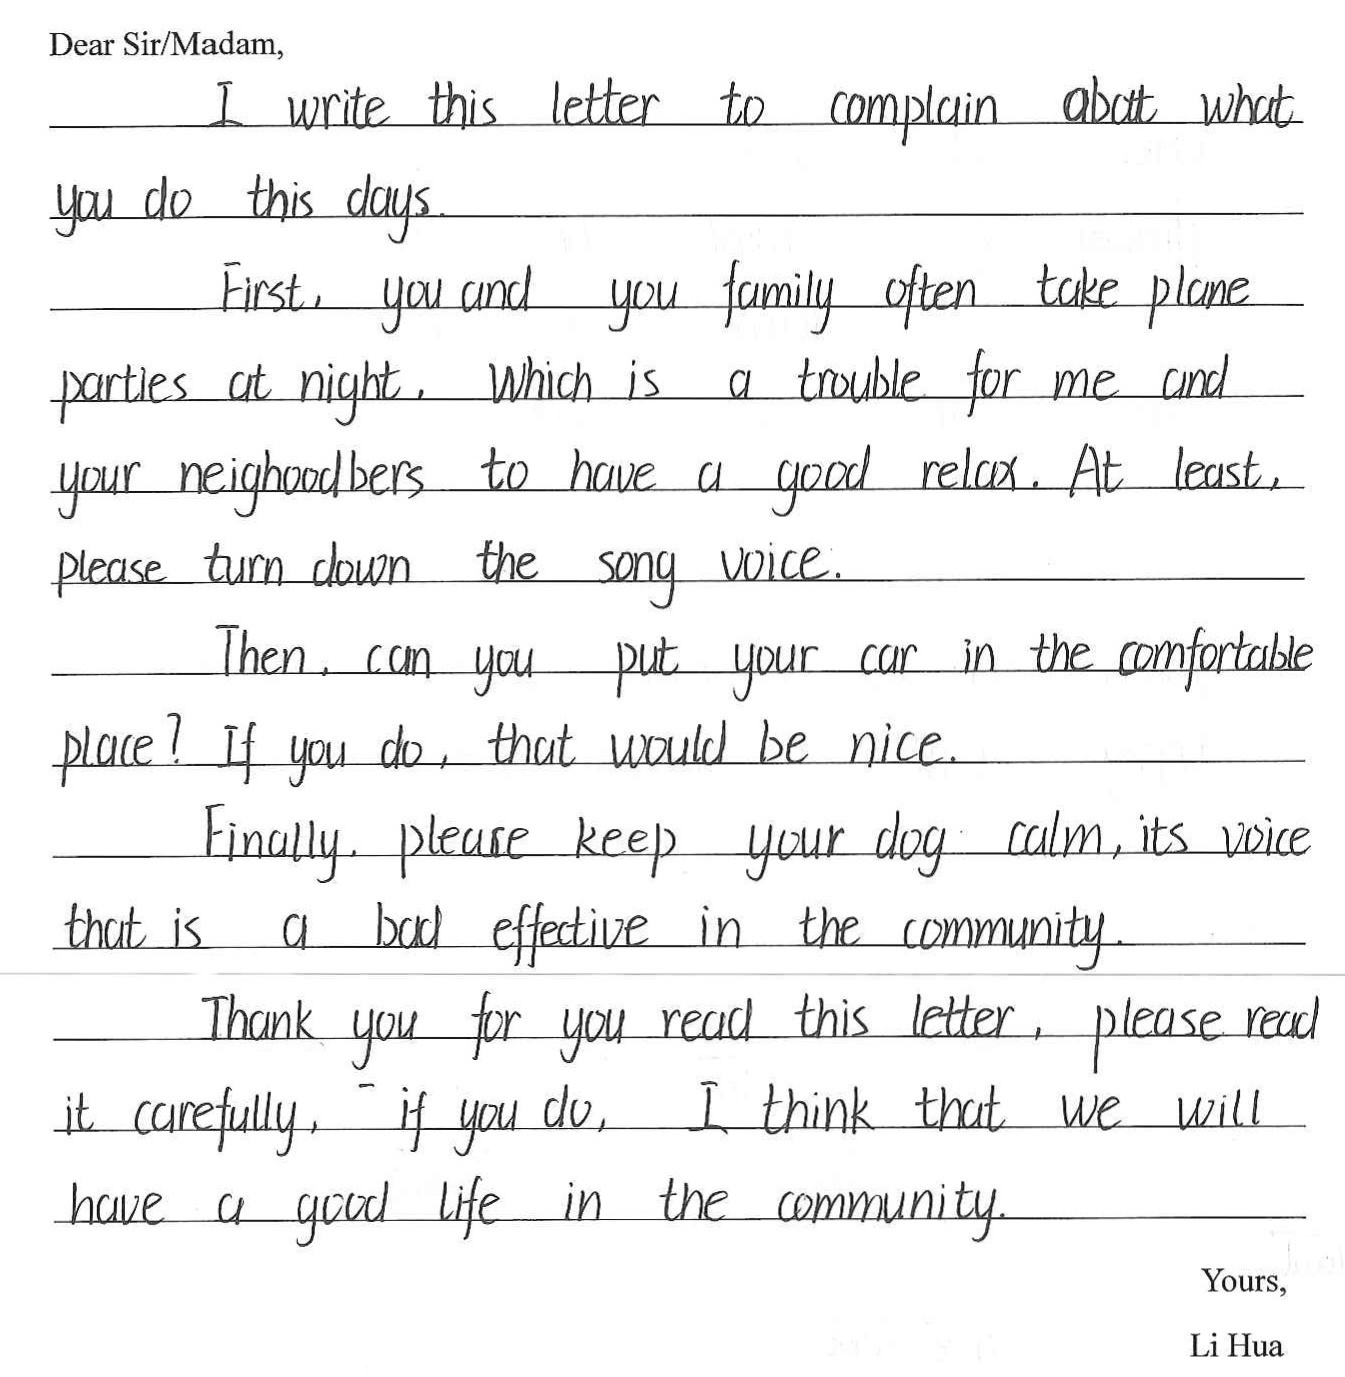 Dear Sir/Madam,
I write this letter to complain abott what
you do this days.
First, you and you family often take plane
parties at night. Which is a trouble for me and
your neighoodbers to have a good relax. At least,
please turn down the song voice.
Then, can you put your car in the comfortable
place? If you do, that would be nice.
Finally, please keep your dog calm, its voice
that is a bad effective in the community.
Thank you for you read this letter, please read
it carefully, if you do, I think that we will
have a good life in the community.
Yours,
Li Hua